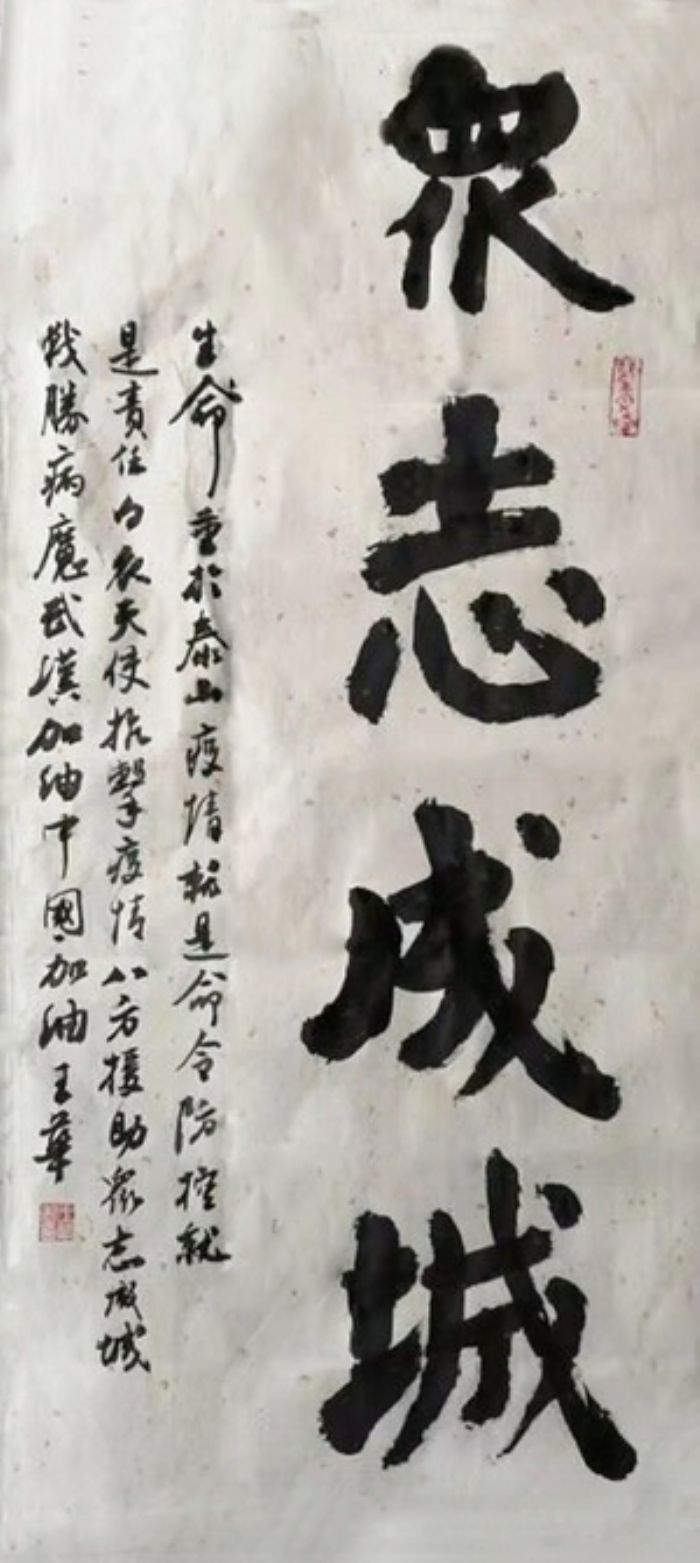 眾志成城
生命重於泰山疫情就是命令防控就
是責任白衣天使抗擊疫情八方援助眾志成城
戰勝病魔武漢加油中國加油王華